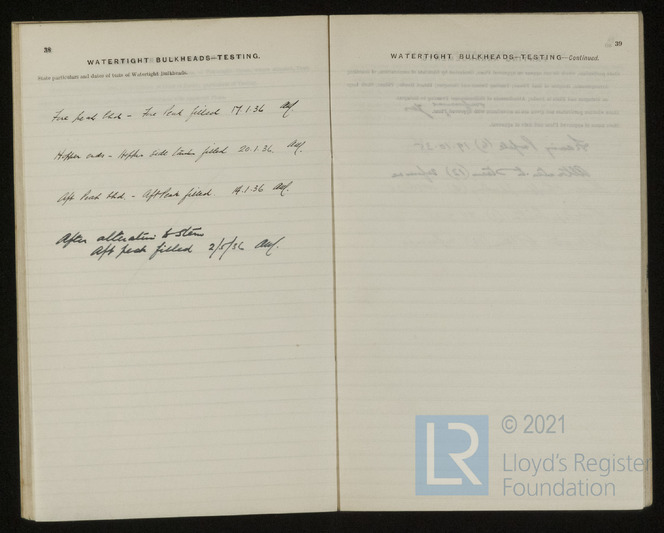 38
WATERTIGHT BULKHEADS—TESTING.
State particulars and dates of tests of Watertight Bulkheads.
Fore peak Bhd - Fore Peak filled 17.1.36
Hopper ends - Hopper side tanks filled 20.1.36.
Aft Peak Bhd. - Aft Peak filled. 14.1.36
After alteration to stern
Aft peak filled 2/5/36
39
WATERTIGHT BULKHEADS—TESTING—Continued.
LR
© 2021
Lloyd's Register
Foundation